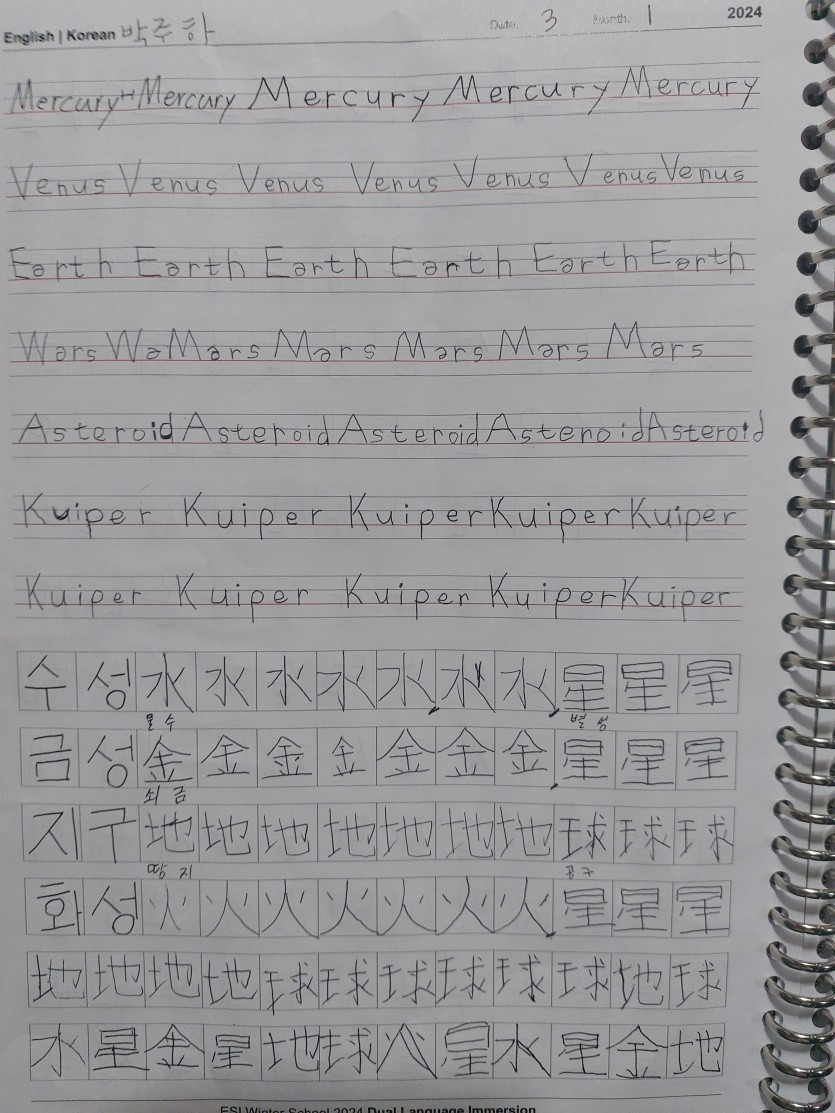 English | Korean 박주하 Date: 3 Month: 1 2024
Mercury Mercury Mercury Mercury Mercury
Venus Venus Venus Venus Venus Venus Venus
Earth Earth Earth Earth Earth Earth
Wars Wa Mars Mars Mars Mars Mars
Asteroid Asteroid Asteroid Asteroid Asteroid
Kuiper Kuiper Kuiper Kuiper Kuiper
Kuiper Kuiper Kuiper Kuiper Kuiper
수 성 水 水 水 水 水 水 水 星 星 星
물 수 별 성
금 성 金 金 金 金 金 金 金 星 星 星
쇠 금
지 구 地 地 地 地 地 地 地 球 球 球
땅 지 공 구
화 성 火 火 火 火 火 火 火 星 星 星
地 地 地 地 球 球 球 球 球 球 地 球
水 星 金 星 地 球 火 星 水 星 金 地
ESI Winter School 2024 Dual Language Immersion